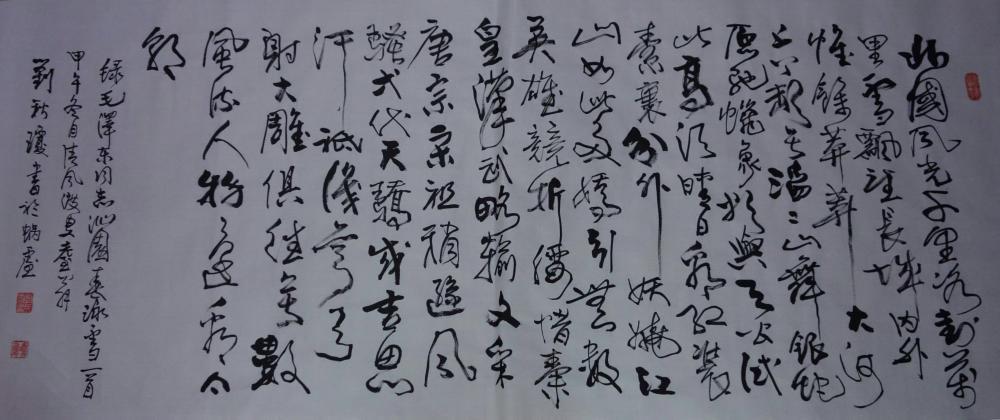 北國風光千里冰封萬
里雪飄望長城內外
惟餘莽莽大河
上下頓失滔滔山舞銀蛇
原馳蠟象欲與天公試
比高須晴日看紅裝
素裹分外妖嬈江
山如此多嬌引無數
英雄競折腰惜秦
皇漢武略輸文采
唐宗宋祖稍遜風
騷弌代天驕成吉思
汗祗識彎弓
射大雕俱往矣數
風流人物還看今
朝
録毛澤東同志沁園春詠雪一首
甲午冬月清風
劉秋瓊書於蝸廬